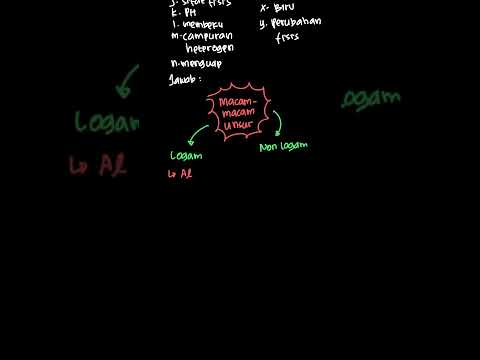 j. sifat fisis
k. pH
l. membeku
m. campuran
heterogen
n. menguap
x. Biru
y. perubahan
fisis
Jawab :
Macam-
macam
unsur
Logam
Non logam
↳ Al